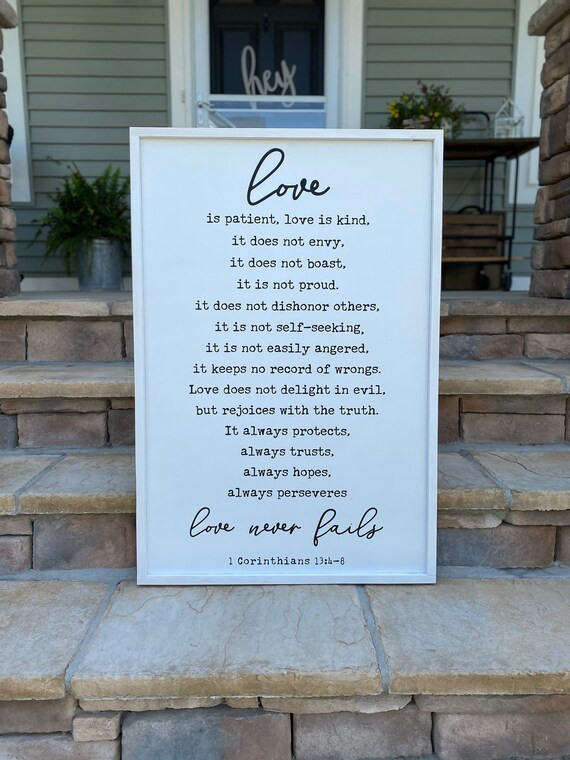 hey
love
is patient, love is kind,
it does not envy,
it does not boast,
it is not proud.
it does not dishonor others,
it is not self-seeking,
it is not easily angered,
it keeps no record of wrongs.
Love does not delight in evil,
but rejoices with the truth.
It always protects,
always trusts,
always hopes,
always perseveres
love never fails
1 Corinthians 13:4-8